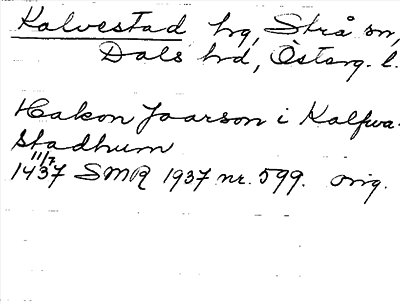 Kalvestad hg, Strå sn,
Dals hd, Österg. l.
Hakon Joarson i Kalfwa-
stadhum
11/7
1437 SMR 1937 nr. 599. orig.